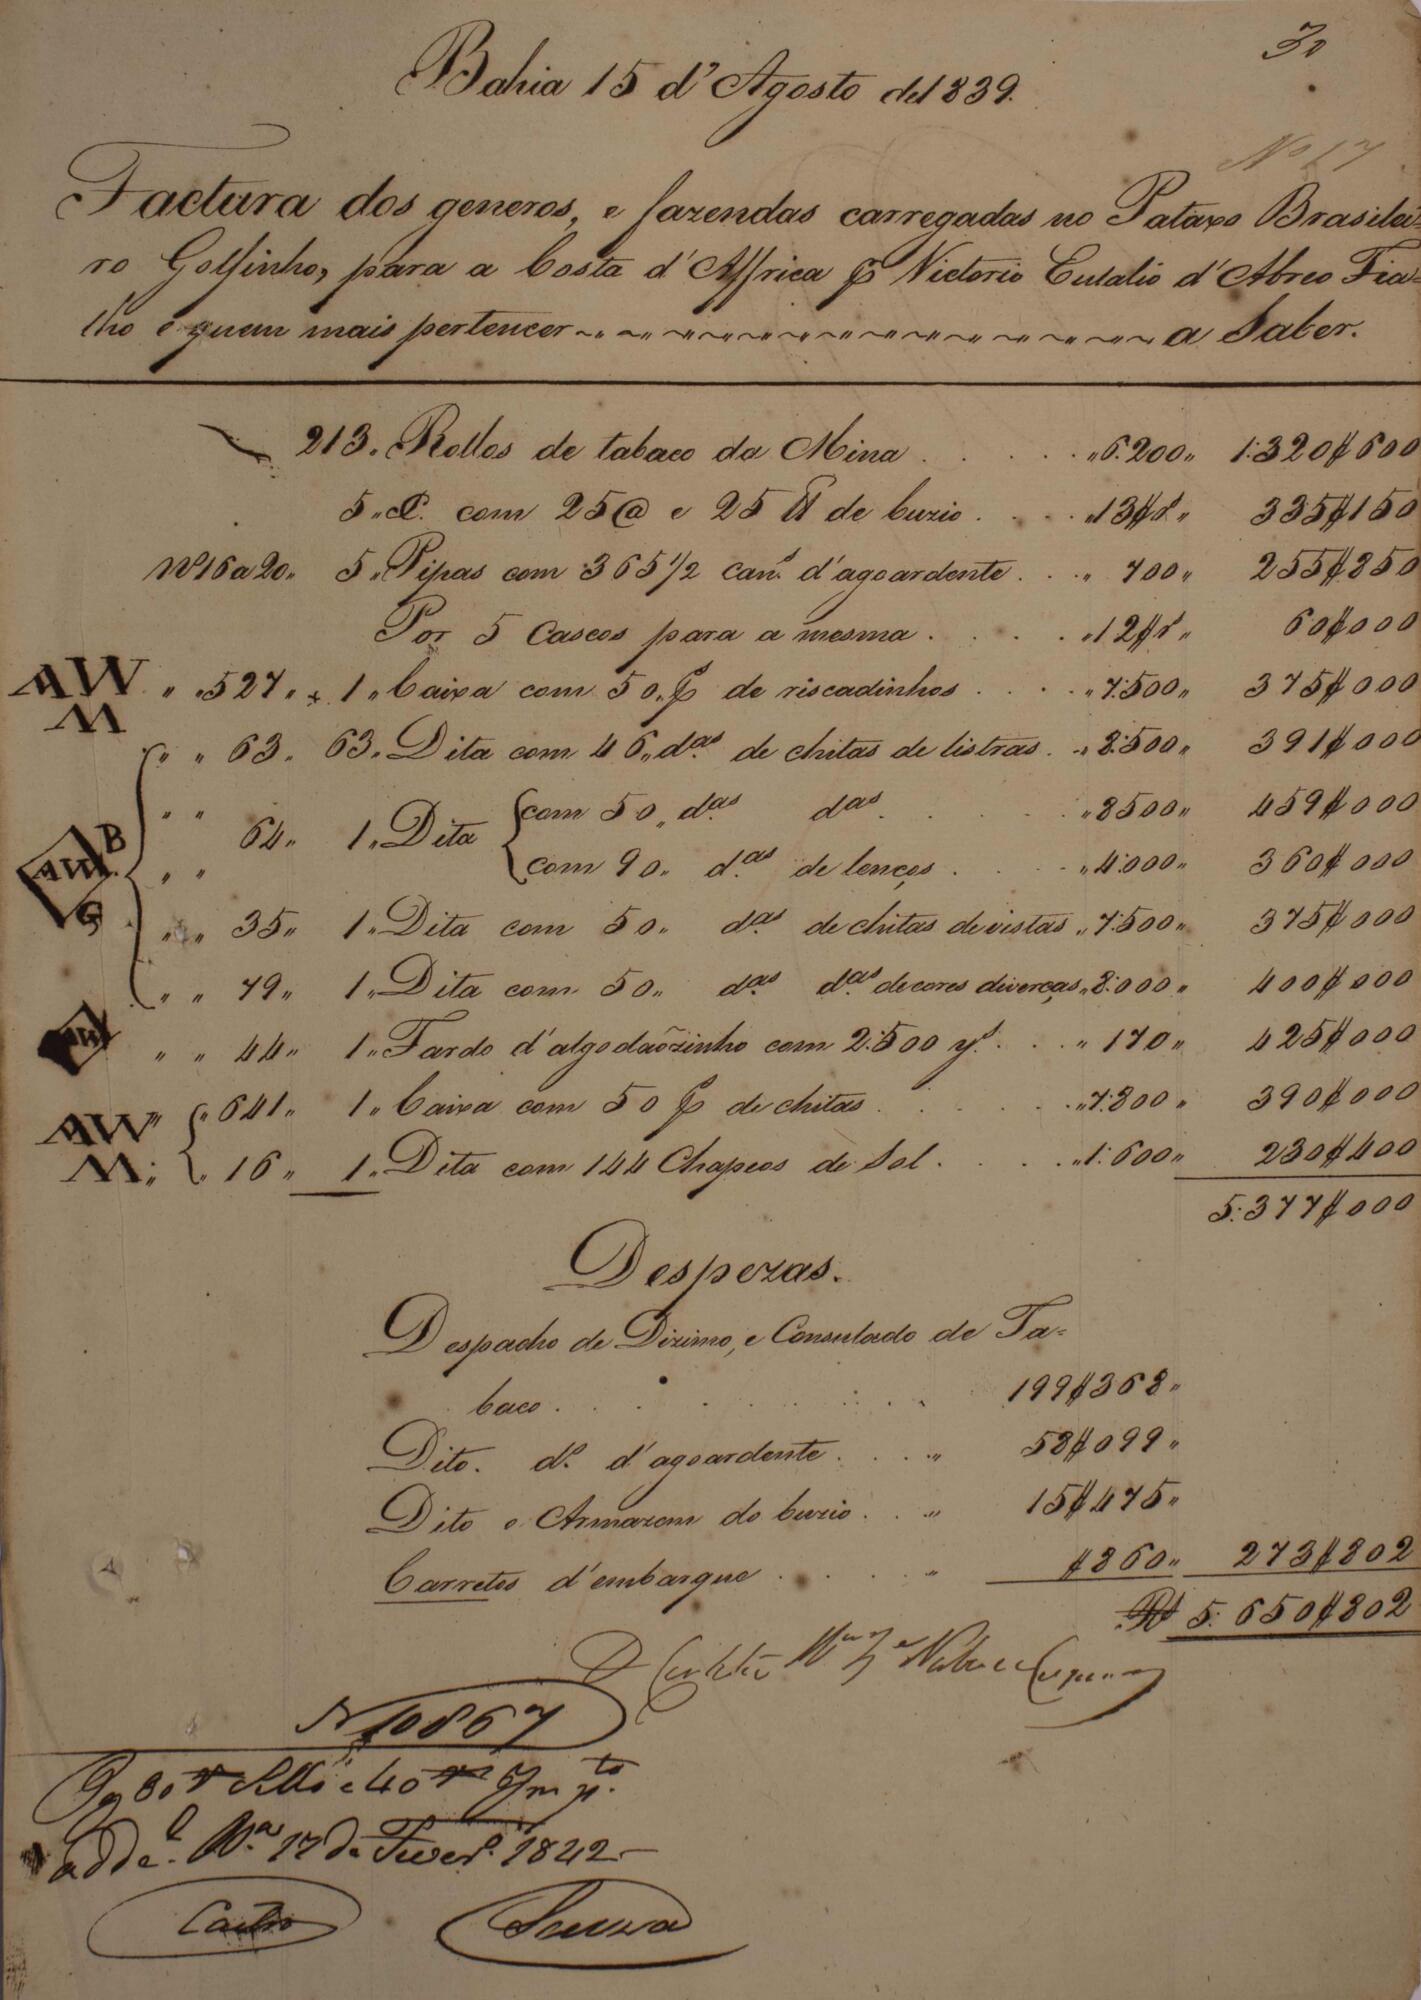 30
Bahia 15 d'Agosto de 1839.
Nº 17
Factura dos generos, e fazendas carregadas no Pataxo Brasilei=
ro Golfinho, para a Costa d'Affrica p Victorio Eutalio d'Abreo Fia=
lho e quem mais pertencer a Saber.
213 " Rollos de tabaco da Mina . . . . " 6.200 " 1:320$600
5 " C. com 25@ e 25 ℔ de buzio . . . " 13$r " 335$150
Nº 16 a 20 " 5 " Pipas com 365 1/2 can.s d'agoardente . . " 700 " 255$850
Por 5 Cascos para a mesma . . . . " 12$r " 60$000
AW M " " 527 " 1 " Caixa com 50 " p.s de riscadinhos . . . " 7:500 " 375$000
" " 63 " 63 " Dita com 46 " d.as de chitas de listras . " 8:500 " 391$000
" " 64 " 1 " Dita { com 50 " d.as d.as . . . " 8500 " 459$000
AW B G " " com 90 " d.as de lenços . . . " 4:000 " 360$000
" " 35 " 1 " Dita com 50 " d.as de chitas de vistas " 7:500 " 375$000
" " 79 " 1 " Dita com 50 " d.as d.as de cores diverças " 8:000 " 400$000
AW " " 44 " 1 " Fardo d'algodaõzinho com 2:500 y.s . . . " 170 " 425$000
AW M " " 641 " 1 " Caixa com 50 p.s de chitas . . . . " 7:800 " 390$000
" " 16 " 1 " Dita com 144 Chapeos de Sol . . . . " 1:600 " 230$400
5:377$000
Despezas.
Despacho de Dizimo, e Consulado de Ta=
baco . . . . . . . . 199$368 "
Dito. d.º d'agoardente . . . " 58$099 "
Dito e Armazem do buzio . . " 15$475 "
Carretos d'embarque . . . . " $860 " 273$802
Rs 5:650$802
N 10867
Pg 80 rs Sello e 40 rs
17 de Fever.º 1842
Castro Souza